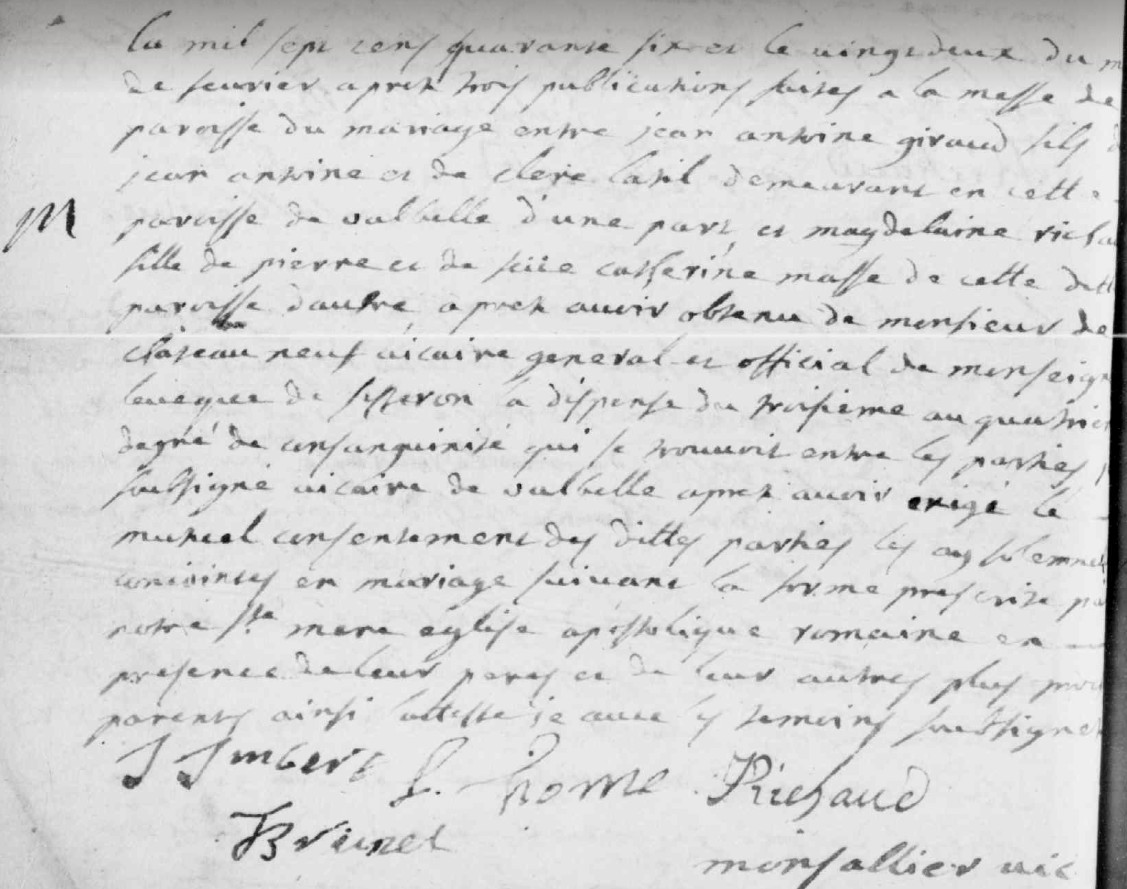 la mil sept cens quarante six et le vingt deux du m
de fevrier apres trois publications faites a la messe de
paroisse du mariage entre jean antoine giraud fils d
jean antoine et de clere latil demeurant en cette
M
paroisse de valbelle d'une part et magdelaine richau
fille de pierre et de feüe catherine masse de cette ditt
paroisse d'autre apres avoir obtenu de monsieur de
chateau neuf vicaire general et official de monseign
leveque de sisteron la dispense du troisieme au quatrie
degré de consanguinité qui se trouvoit entre les parties
soussigné vicaire de valbelle apres avoir exigé le
mutuel consentement des dittes parties les ay solemnel
conjointes en mariage suivant la forme prescrite pa
notre ste mere eglise apostolique romaine en
presence de leur peres et de leur autres plus proc
parents ainsi l'atteste je avec les temoins soussignes
J Imbert L. Thome Richaud
Brunet
monsallier vic